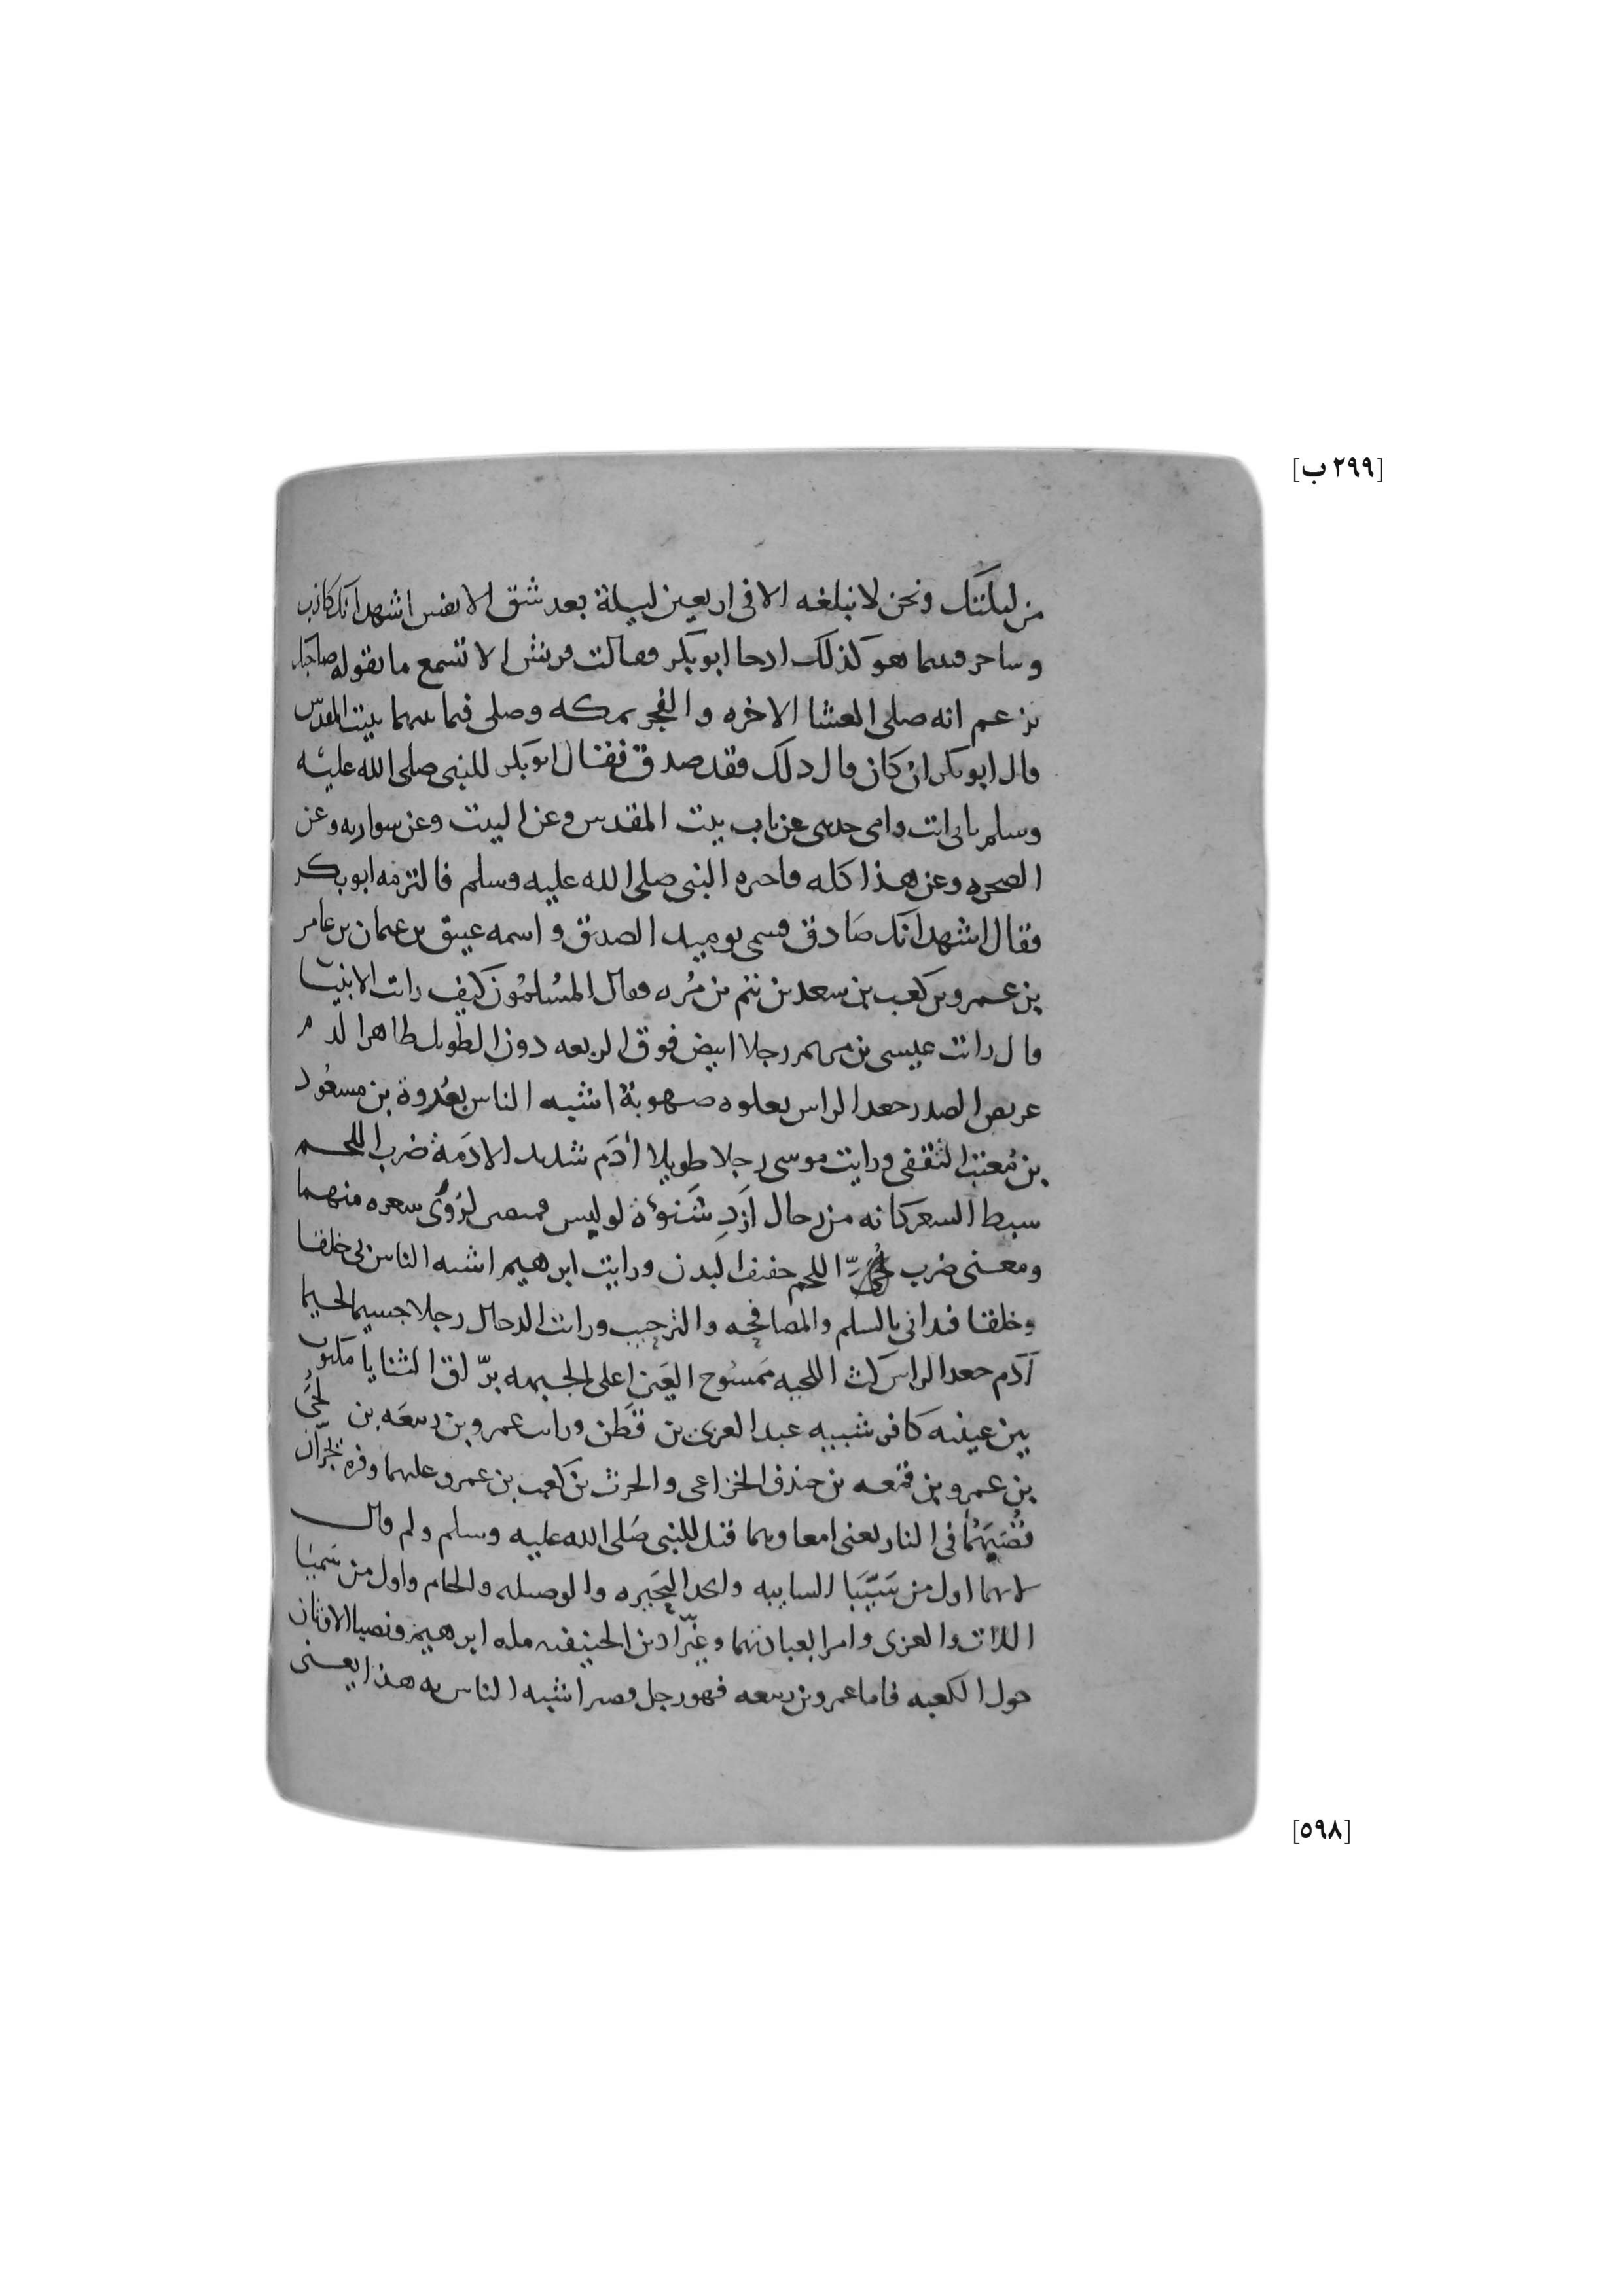 [٢٩٩ ب]
من ليلتك ونحن لا نبلغه الا في اربعين ليلة بعد شق الانفس اشهد انك كاذب
وساحر فبينما هو كذلك اذ جا ابو بكر فقالت قريش الا تسمع ما يقوله صاحبك
يزعم انه صلى العشا الاخره والفجر بمكه وصلى فيما بينهما ببيت المقدس
قال ابو بكر ان كان قال ذلك فقد صدق فقال ابو بكر للنبي صلى الله عليه
وسلم بابي انت وامي حدثني عن باب بيت المقدس وعن البيت وعن سواريه وعن
الصخره وعن هذا كله فاخبره النبي صلى الله عليه وسلم فالتزمه ابو بكر
فقال اشهد انك صادق فسمي يوميذ الصديق واسمه عتيق بن عثمان بن عامر
بن عمرو بن كعب بن سعد بن تيم بن مُره فقال المسُلمُون كيف رايت الانبيا
قال رايت عيسى بن مريم رجلا ابيض فوق الربعه دون الطويل ظاهر الدم
عريض الصدر جعد الراس يعلوه صهوبة اشبه الناس بعُروة بن مسعُود
بن مُعتب الثقفي ورايت موسى رجلا طويلا أدَم شديد الادَمة ضرب اللحم
سبط الشعر كانه من رجال ازدِ شَنوءة لو لبس قميصين لرُؤى شعره منهما
ومعنى ضرب اللحم خفيف البدن ورايت ابرهيم اشبه الناس بي خلقا
وخلقا فبداني بالسلم والمصافحه والترحيب ورايت الدجال رجلا جسيما لحيما
آدَم جعد الراس كث اللحيه ممسُوح العَين اعلى الجبهه برّاق الثنايا مكتوب
بين عينيه كافر شبيه عبد العزى بن قَطن ورايت عمرو بن ربيعَه بن لُحَي
بن عمرو بن قمعه بن خندف الخزاعي والحرث بن كعب بن عمرو عليهما وفره يجرّان
قُصبَهُما في النار يعني امعاوهما قيل للنبي صَلى الله عليه وسلم ولم قال
لانهما اول من سَيّبَا السايبه واتخذا البَحَيره والوصيله والحام واول من سَميا
اللات والعزى وامرا بعبادتهما وغيّرا دين الحنيفيه مله ابرهيم ونصبا الاوثان
حول الكعبه فاما عمرو بن ربيعه فهو رجل قصير اشبه الناس به هذا يعني
[٥٩٨]